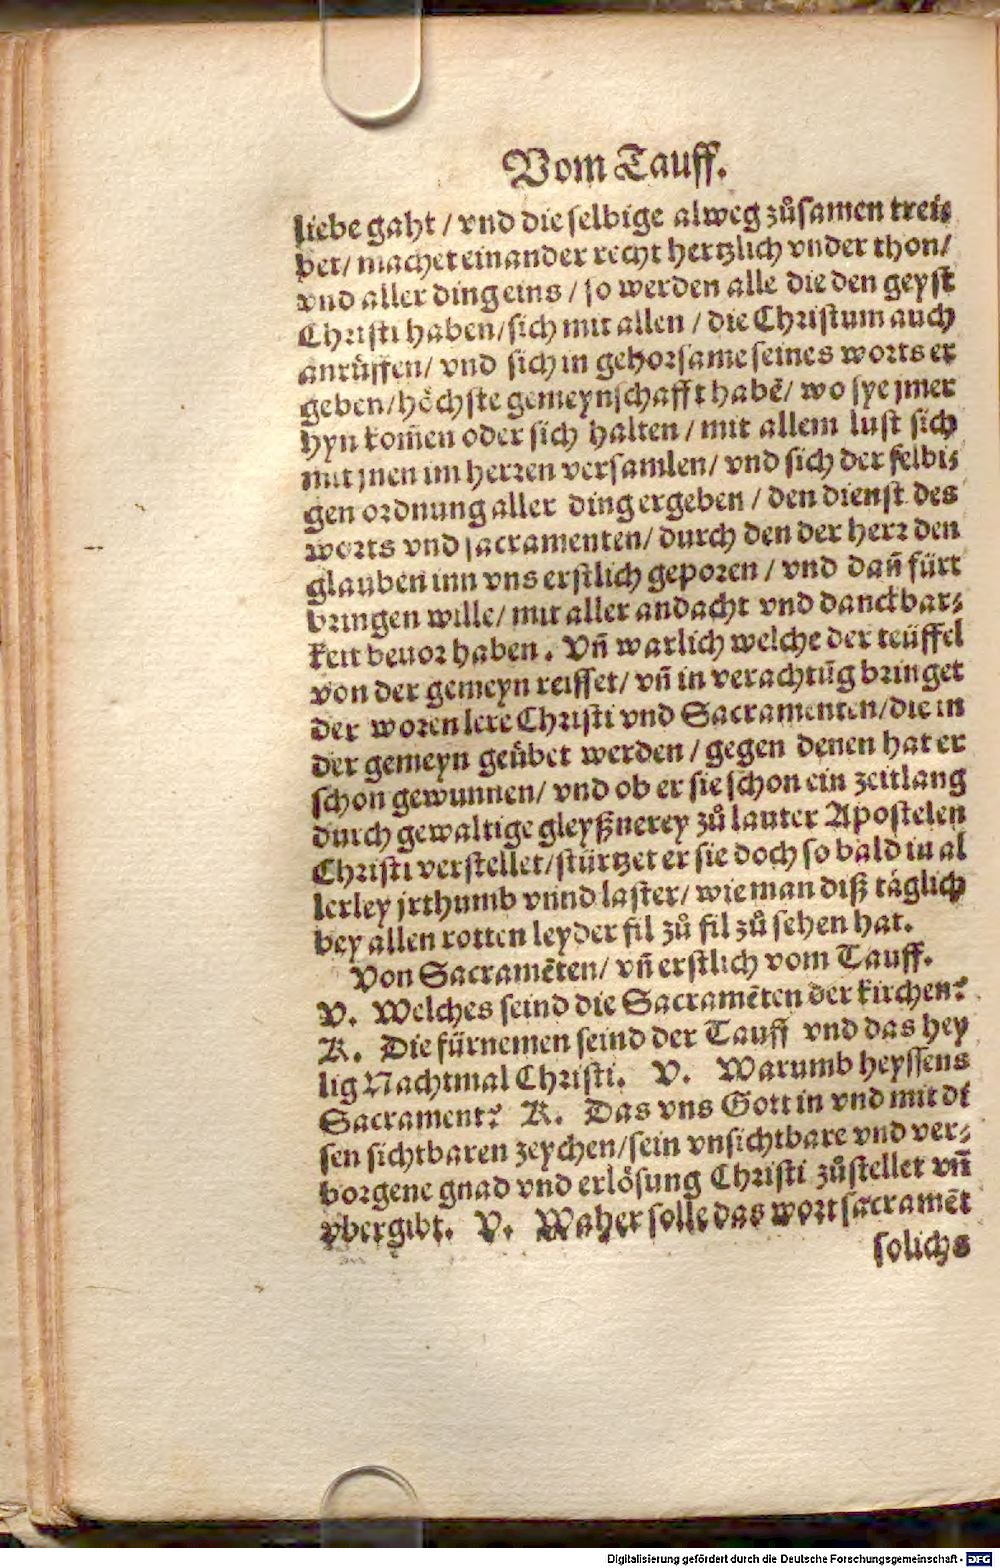 Vom Tauff.
liebe gaht / vnd die selbige alweg zůsamen trei⸗
bet / machet einander recht hertzlich vnder thon /
vnd aller ding eins / so werden alle die den geyst
Christi haben / sich mit allen / die Christum auch
anrüffen / vnd sich in gehorsame seines worts er
geben / höchste gemeynschafft habē / wo sye jmer
hyn kom̄en oder sich halten / mit allem lust sich
mit jnen im herren versamlen / vnd sich der selbi⸗
gen ordnung aller ding ergeben / den dienst des
worts vnd sacramenten / durch den der herr den
glauben inn vns erstlich geporen / vnd dan̄ fürt
bringen wille / mit aller andacht vnd danckbar⸗
keit beuor haben. Vn̄ warlich welche der teüffel
von der gemeyn reisset / vn̄ in verachtūg bringet
der woren lere Christi vnd Sacramenten / die in
der gemeyn geübet werden / gegen denen hat er
schon gewunnen / vnd ob er sie schon ein zeitlang
durch gewaltige gleyßnerey zů lauter Apostelen
Christi verstellet / stürtzet er sie doch so bald in al
lerley jrthumb vnnd laster / wie man diß täglich
bey allen rotten leyder fil zů fil zů sehen hat.
Von Sacramēten / vn̄ erstlich vom Tauff.
V. Welches seind die Sacramēten der kirchen?
K. Die fürnemen seind der Tauff vnd das hey
lig Nachtmal Christi. V. Warumb heyssens
Sacrament? K. Das vns Gott in vnd mit di
sen sichtbaren zeychen / sein vnsichtbare vnd ver⸗
borgene gnad vnd erlösung Christi zůstellet vn̄
vbergibt. V. Waher solle das wort sacramēt
solichs
Digitalisierung gefördert durch die Deutsche Forschungsgemeinschaft - DFG